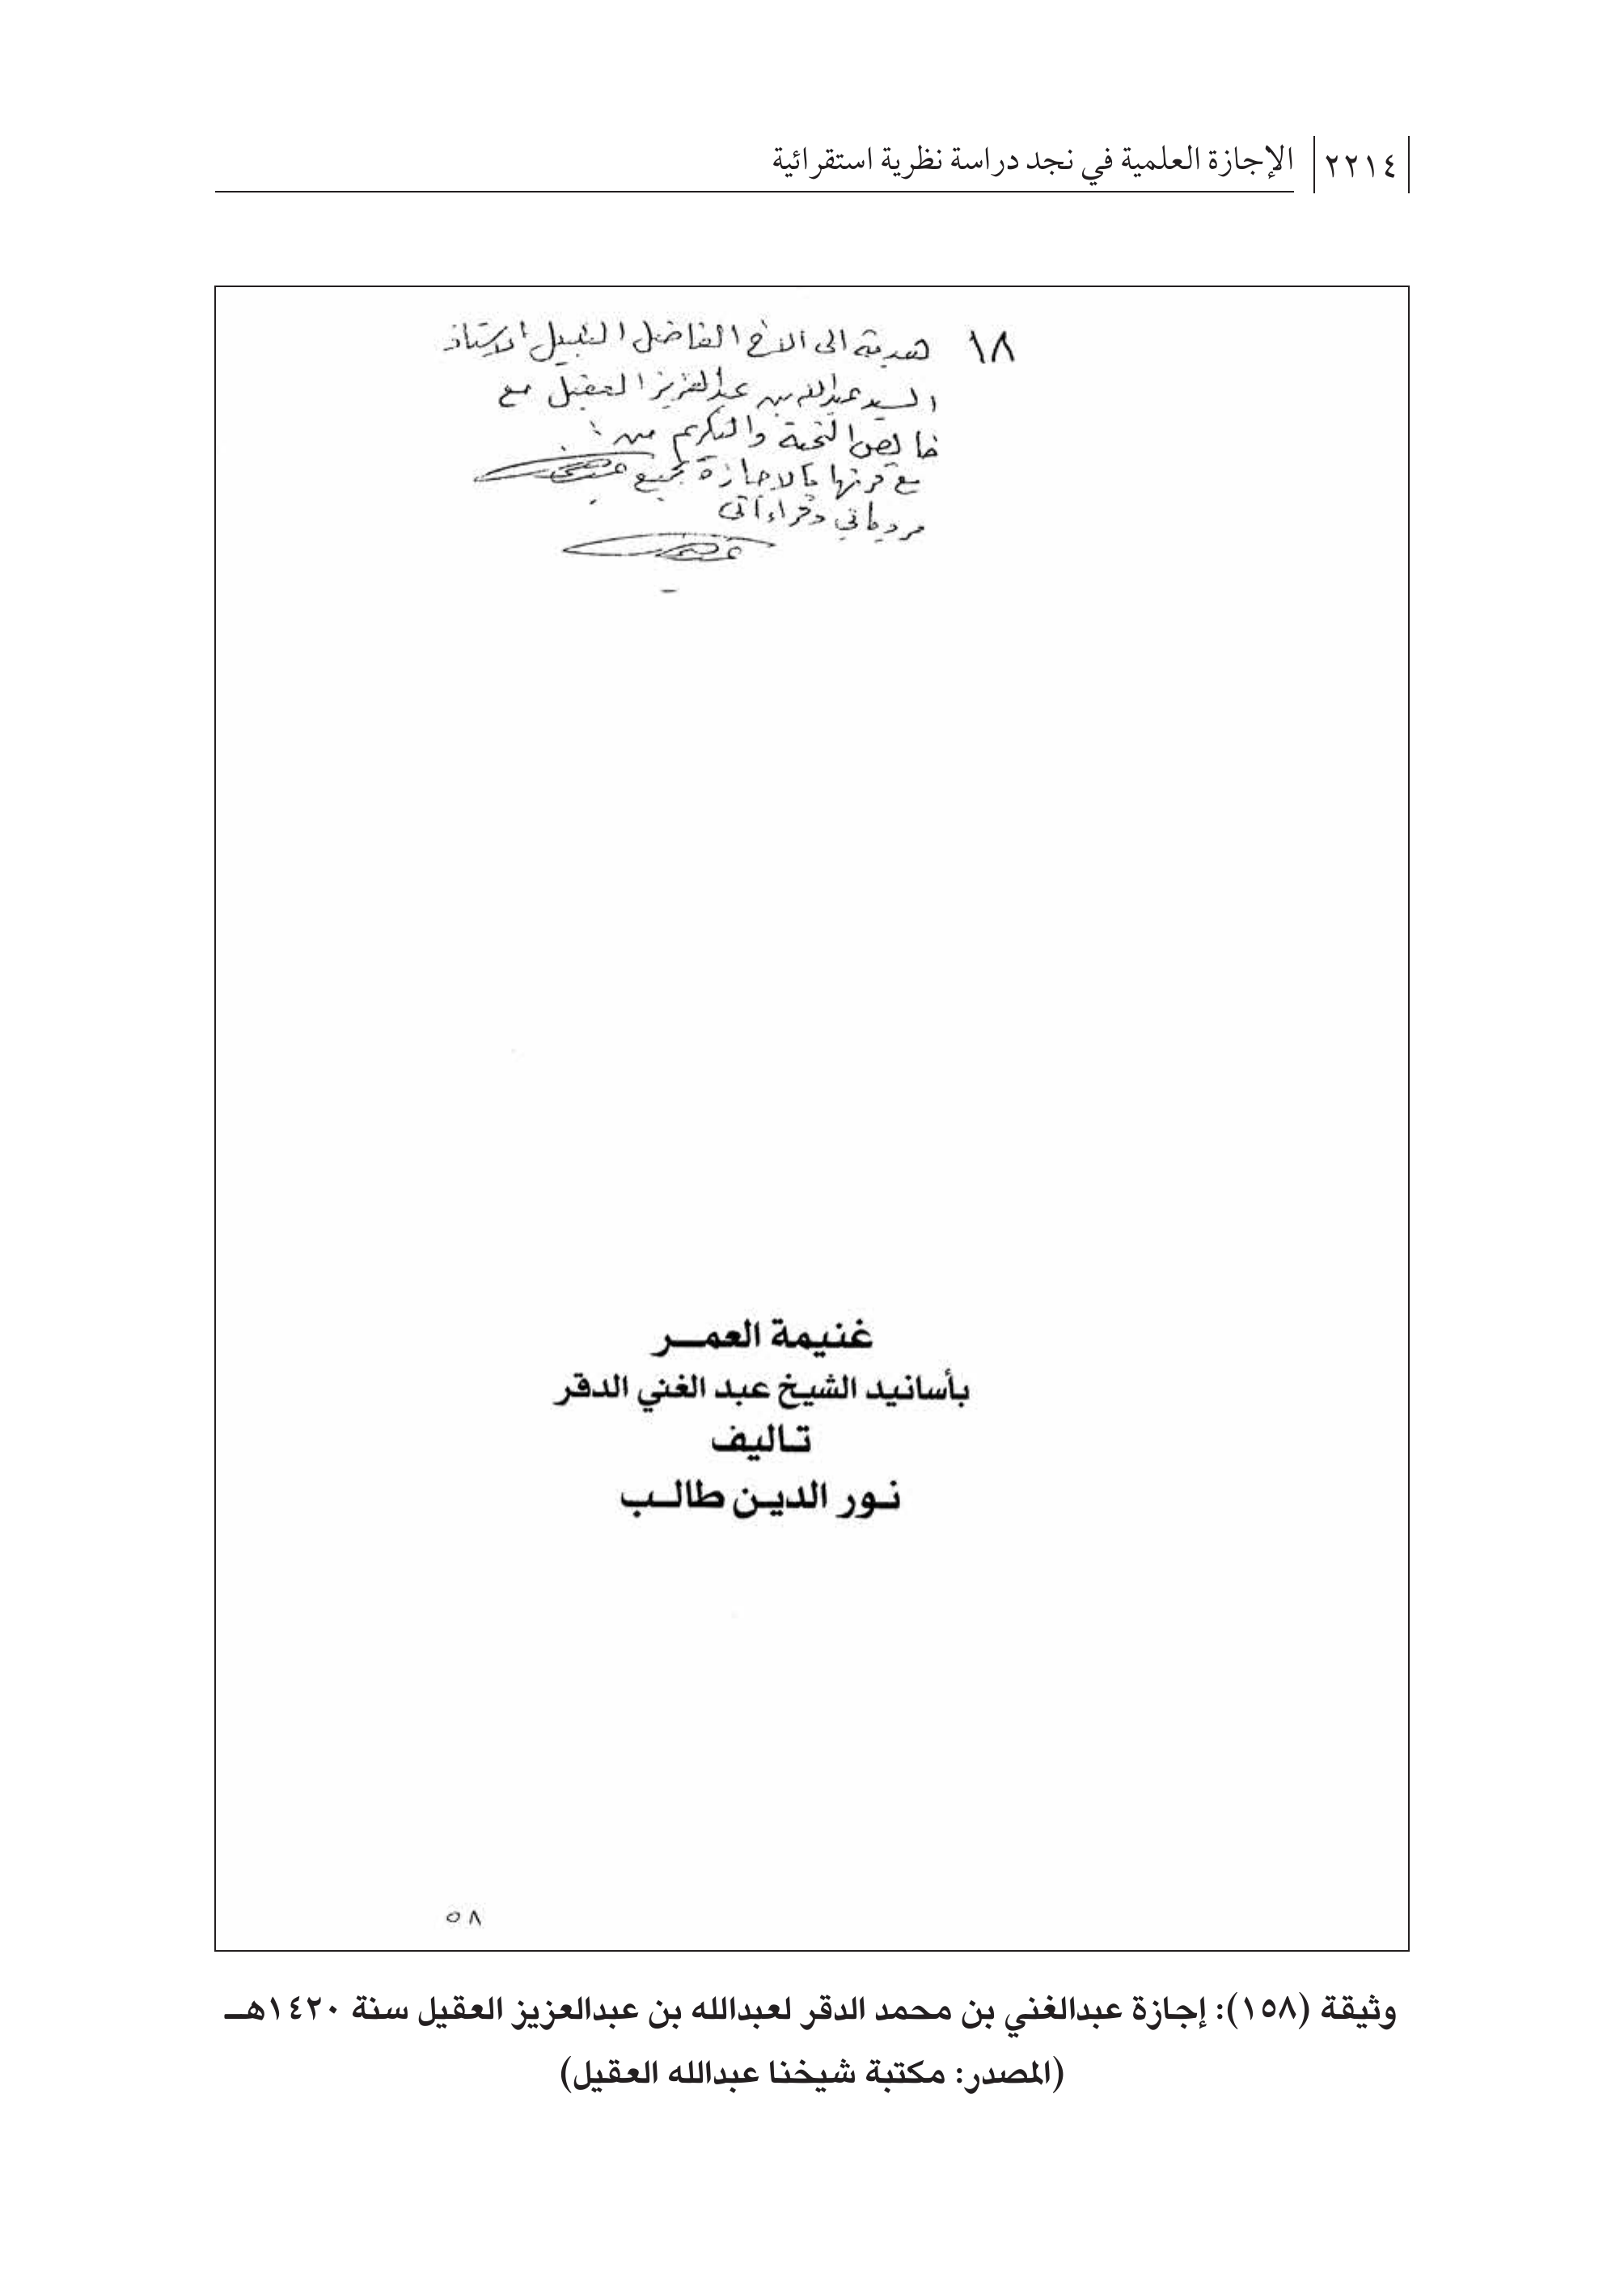 ٢٢١٤ الإجازة العلمية في نجد دراسة نظرية استقرائية
١٨ هدية الى الاخ الفاضل النبيل الاستاذ
السيد عبدالله بن عبدالعزيز العقيل مع
خالص التحية والتكريم من :
مع قرنها بالاجازة بجميع
مروياتي وقراءاتي
غنيمة العمـــر
بأسانيد الشيخ عبد الغني الدقر
تـاليف
نـور الديـن طالـب
٥٨
وثيقة (١٥٨): إجازة عبدالغني بن محمد الدقر لعبدالله بن عبدالعزيز العقيل سنة ١٤٢٠هـ
(المصدر: مكتبة شيخنا عبدالله العقيل)